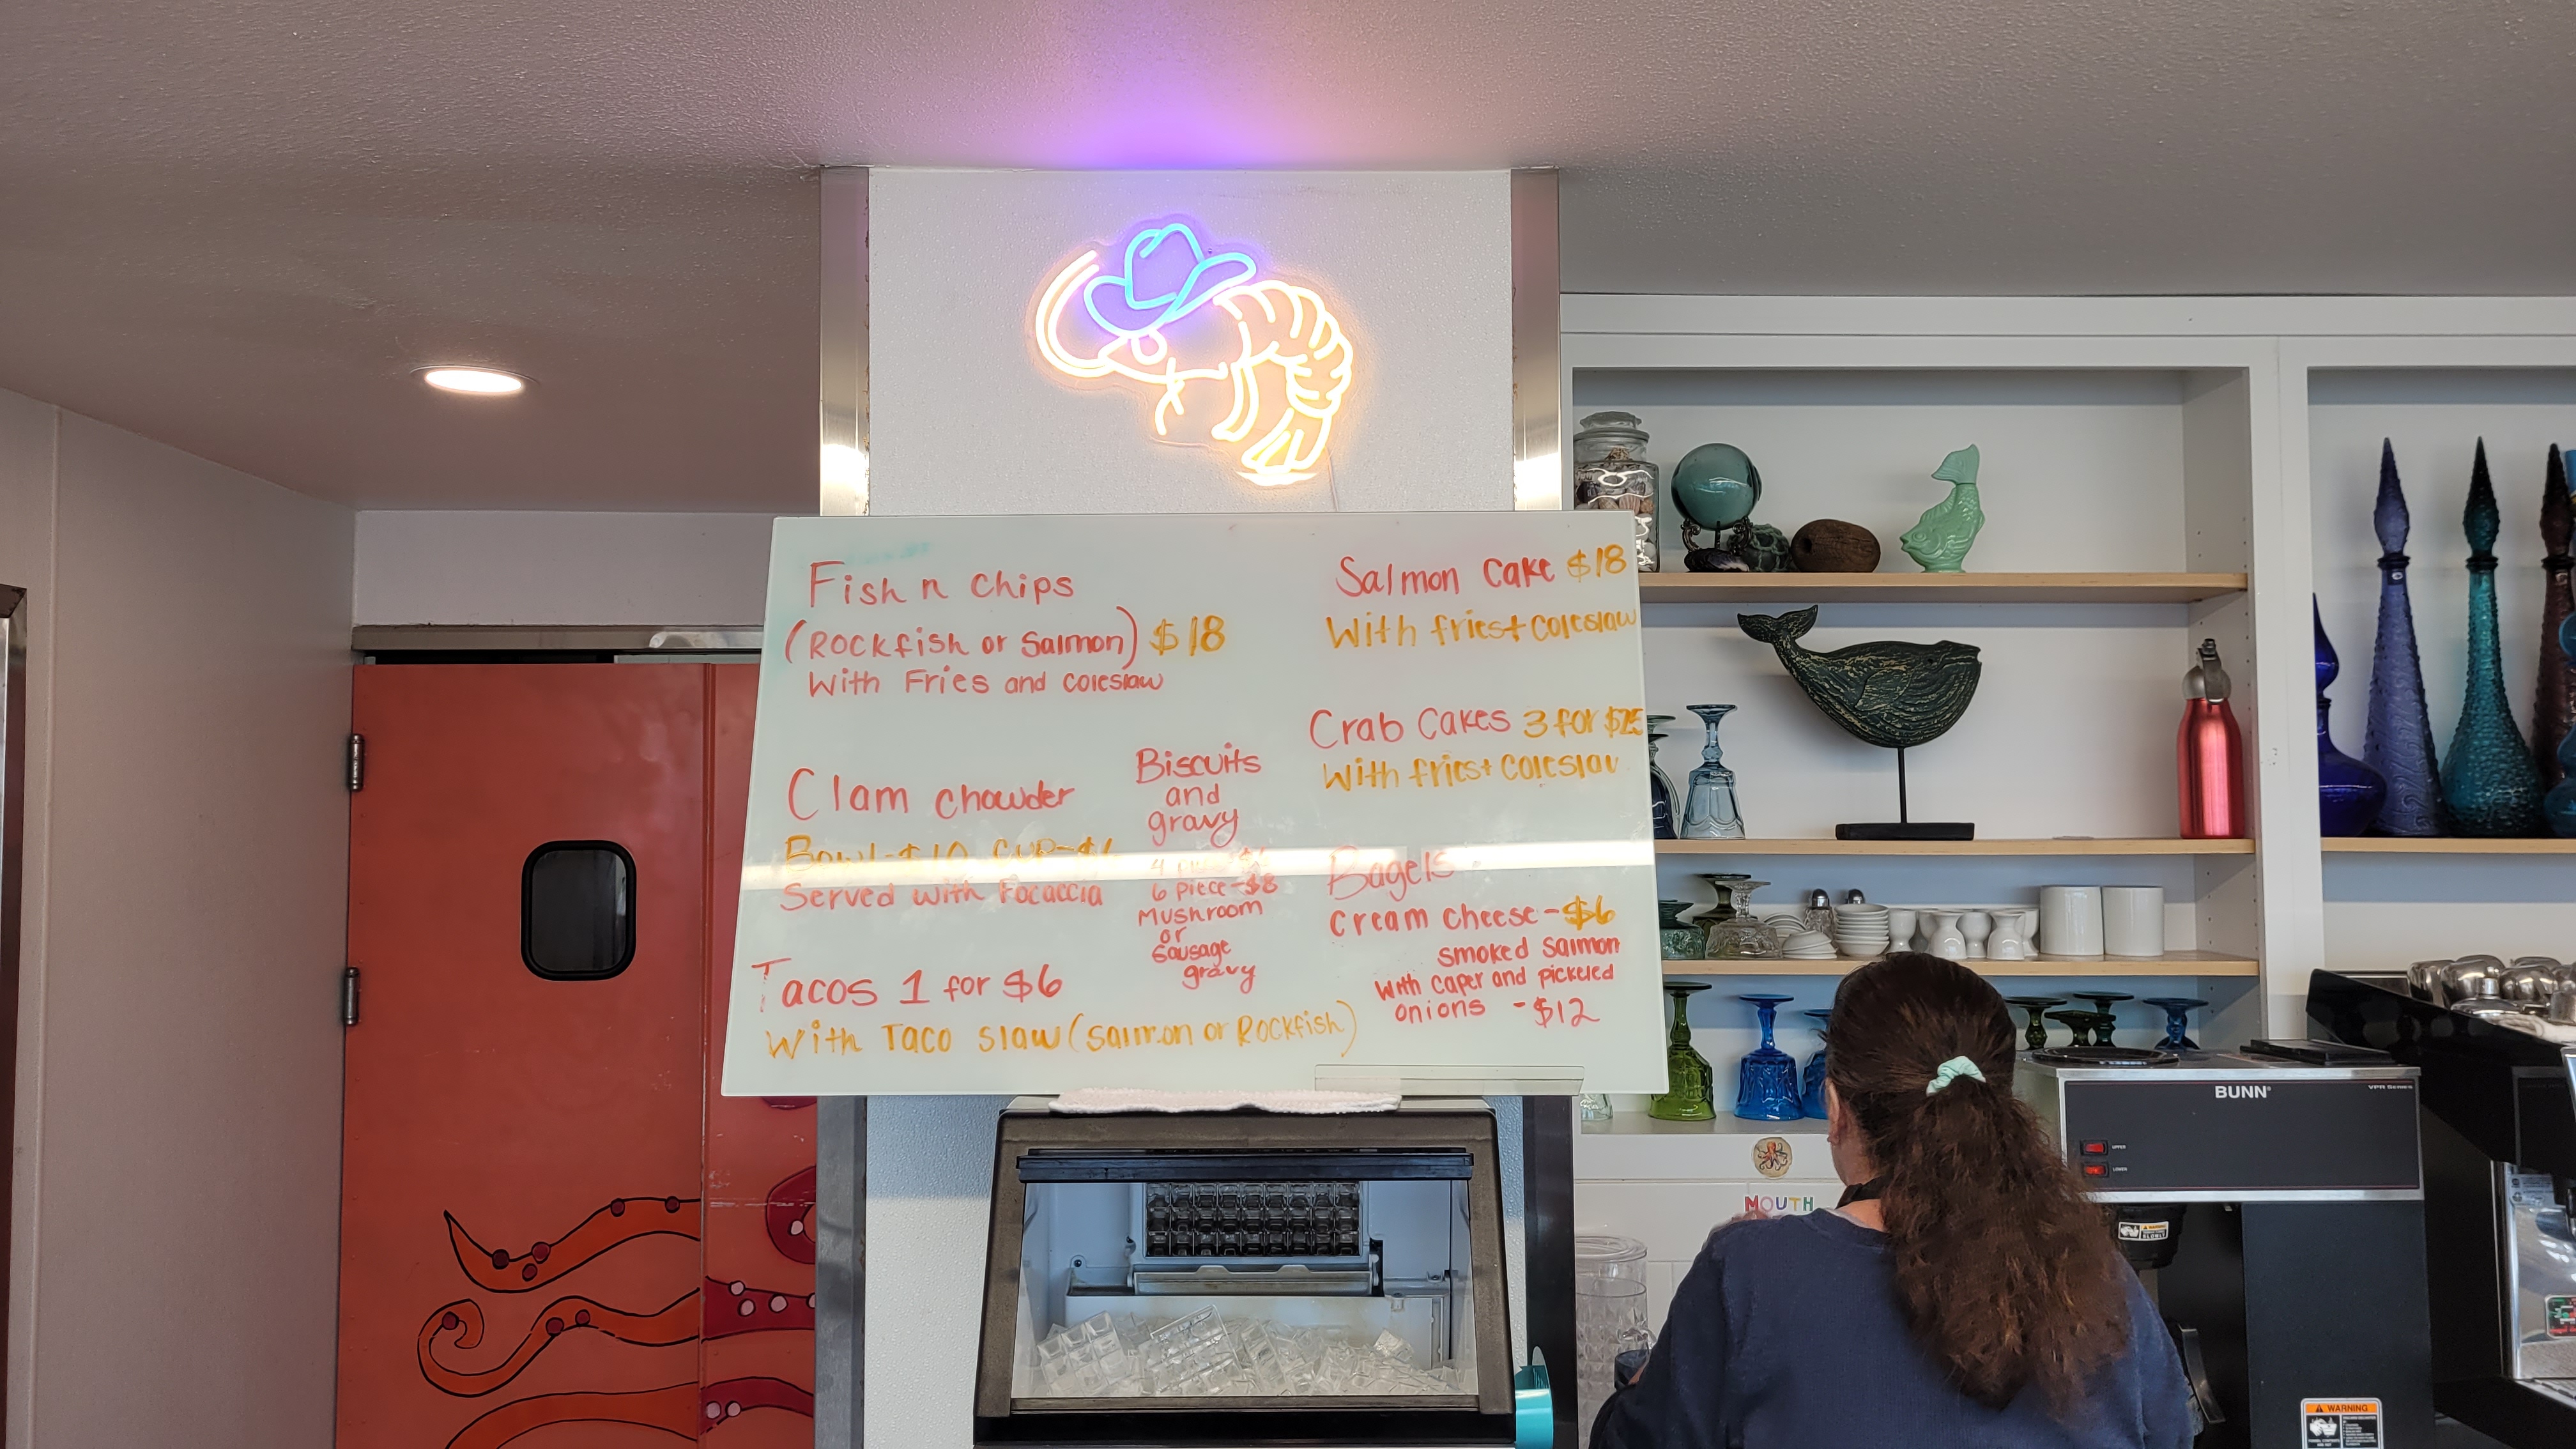 Fish n chips
(Rockfish or Salmon) $18
With Fries and coleslaw
Clam chowder
Bowl-$10 cup-$6
Served with Focaccia
Tacos 1 for $6
With Taco slaw (salmon or Rockfish)
Biscuits
and
gravy
6 piece-$8
Mushroom
or
Sausage
gravy
Salmon Cake $18
With fries+coleslaw
Crab Cakes 3 for $25
With fries+ coleslaw
Bagels
cream cheese-$6
smoked salmon
with caper and pickeled
onions -$12
MOUTH
BUNN®
VPR SERIES
UPPER
LOWER
WARNING